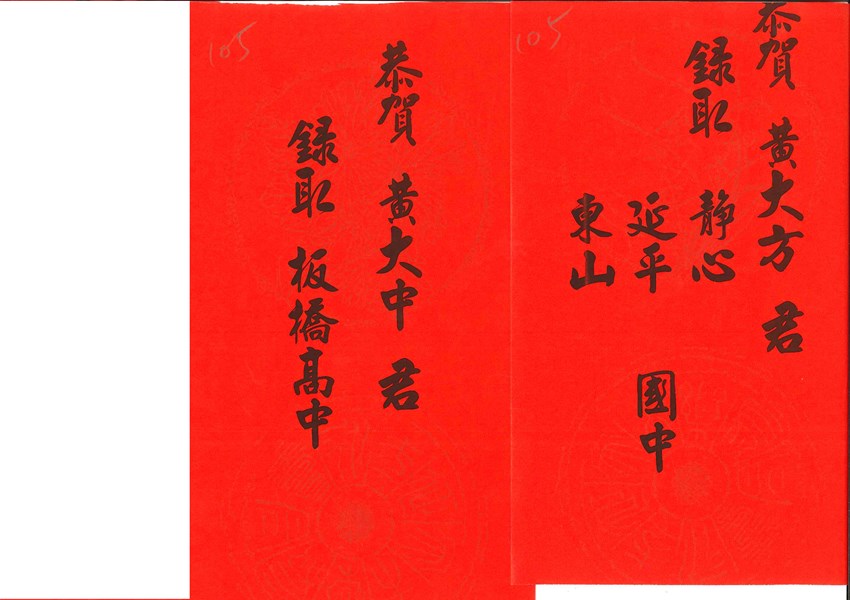 恭賀 黃大方 君
錄取 靜心
延平 國中
東山
105
恭賀 黃大中 君
錄取 板橋高中
105